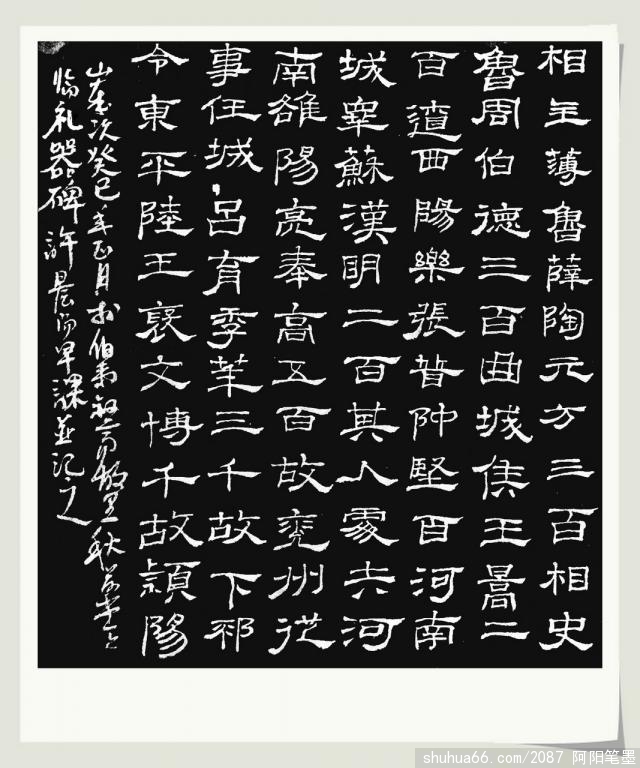 相主薄魯薛陶元方三百相史
魯周伯德三百曲城侯王暠二
百遼西陽樂張普仲堅百河南
城皋蘇漢明二百其人處士河
南雒陽亮奉高五百故兖州從
事任城呂育季華三千故下邳
令東平陸王襃文博千故潁陽
歲次癸巳年正月於伯
臨礼器碑許早課並記之
shuhua66.com/2087 阿阳笔墨